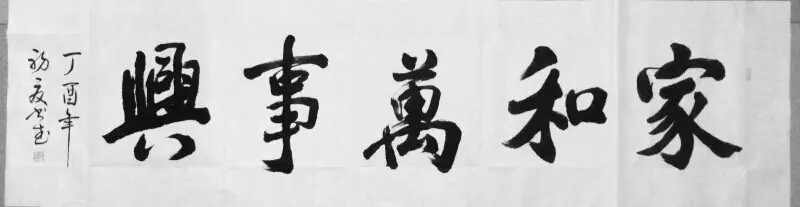 家和萬事興
丁酉年
初夏